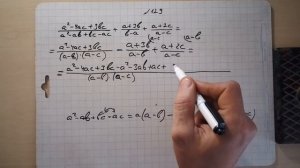 № 123
a²-4ac+3bc / a²-ab+bc-ac + a+3b / b-a + a+2c / a-c =
= a²-4ac+3bc / (a-b)(a-c) - a+3b / a-b + a+2c / a-c =
a-b
= a²-4ac+3bc-a²-3ab+ac+ / (a-b)(a-c)
a²-ab+bc-ac = a(a-b)-